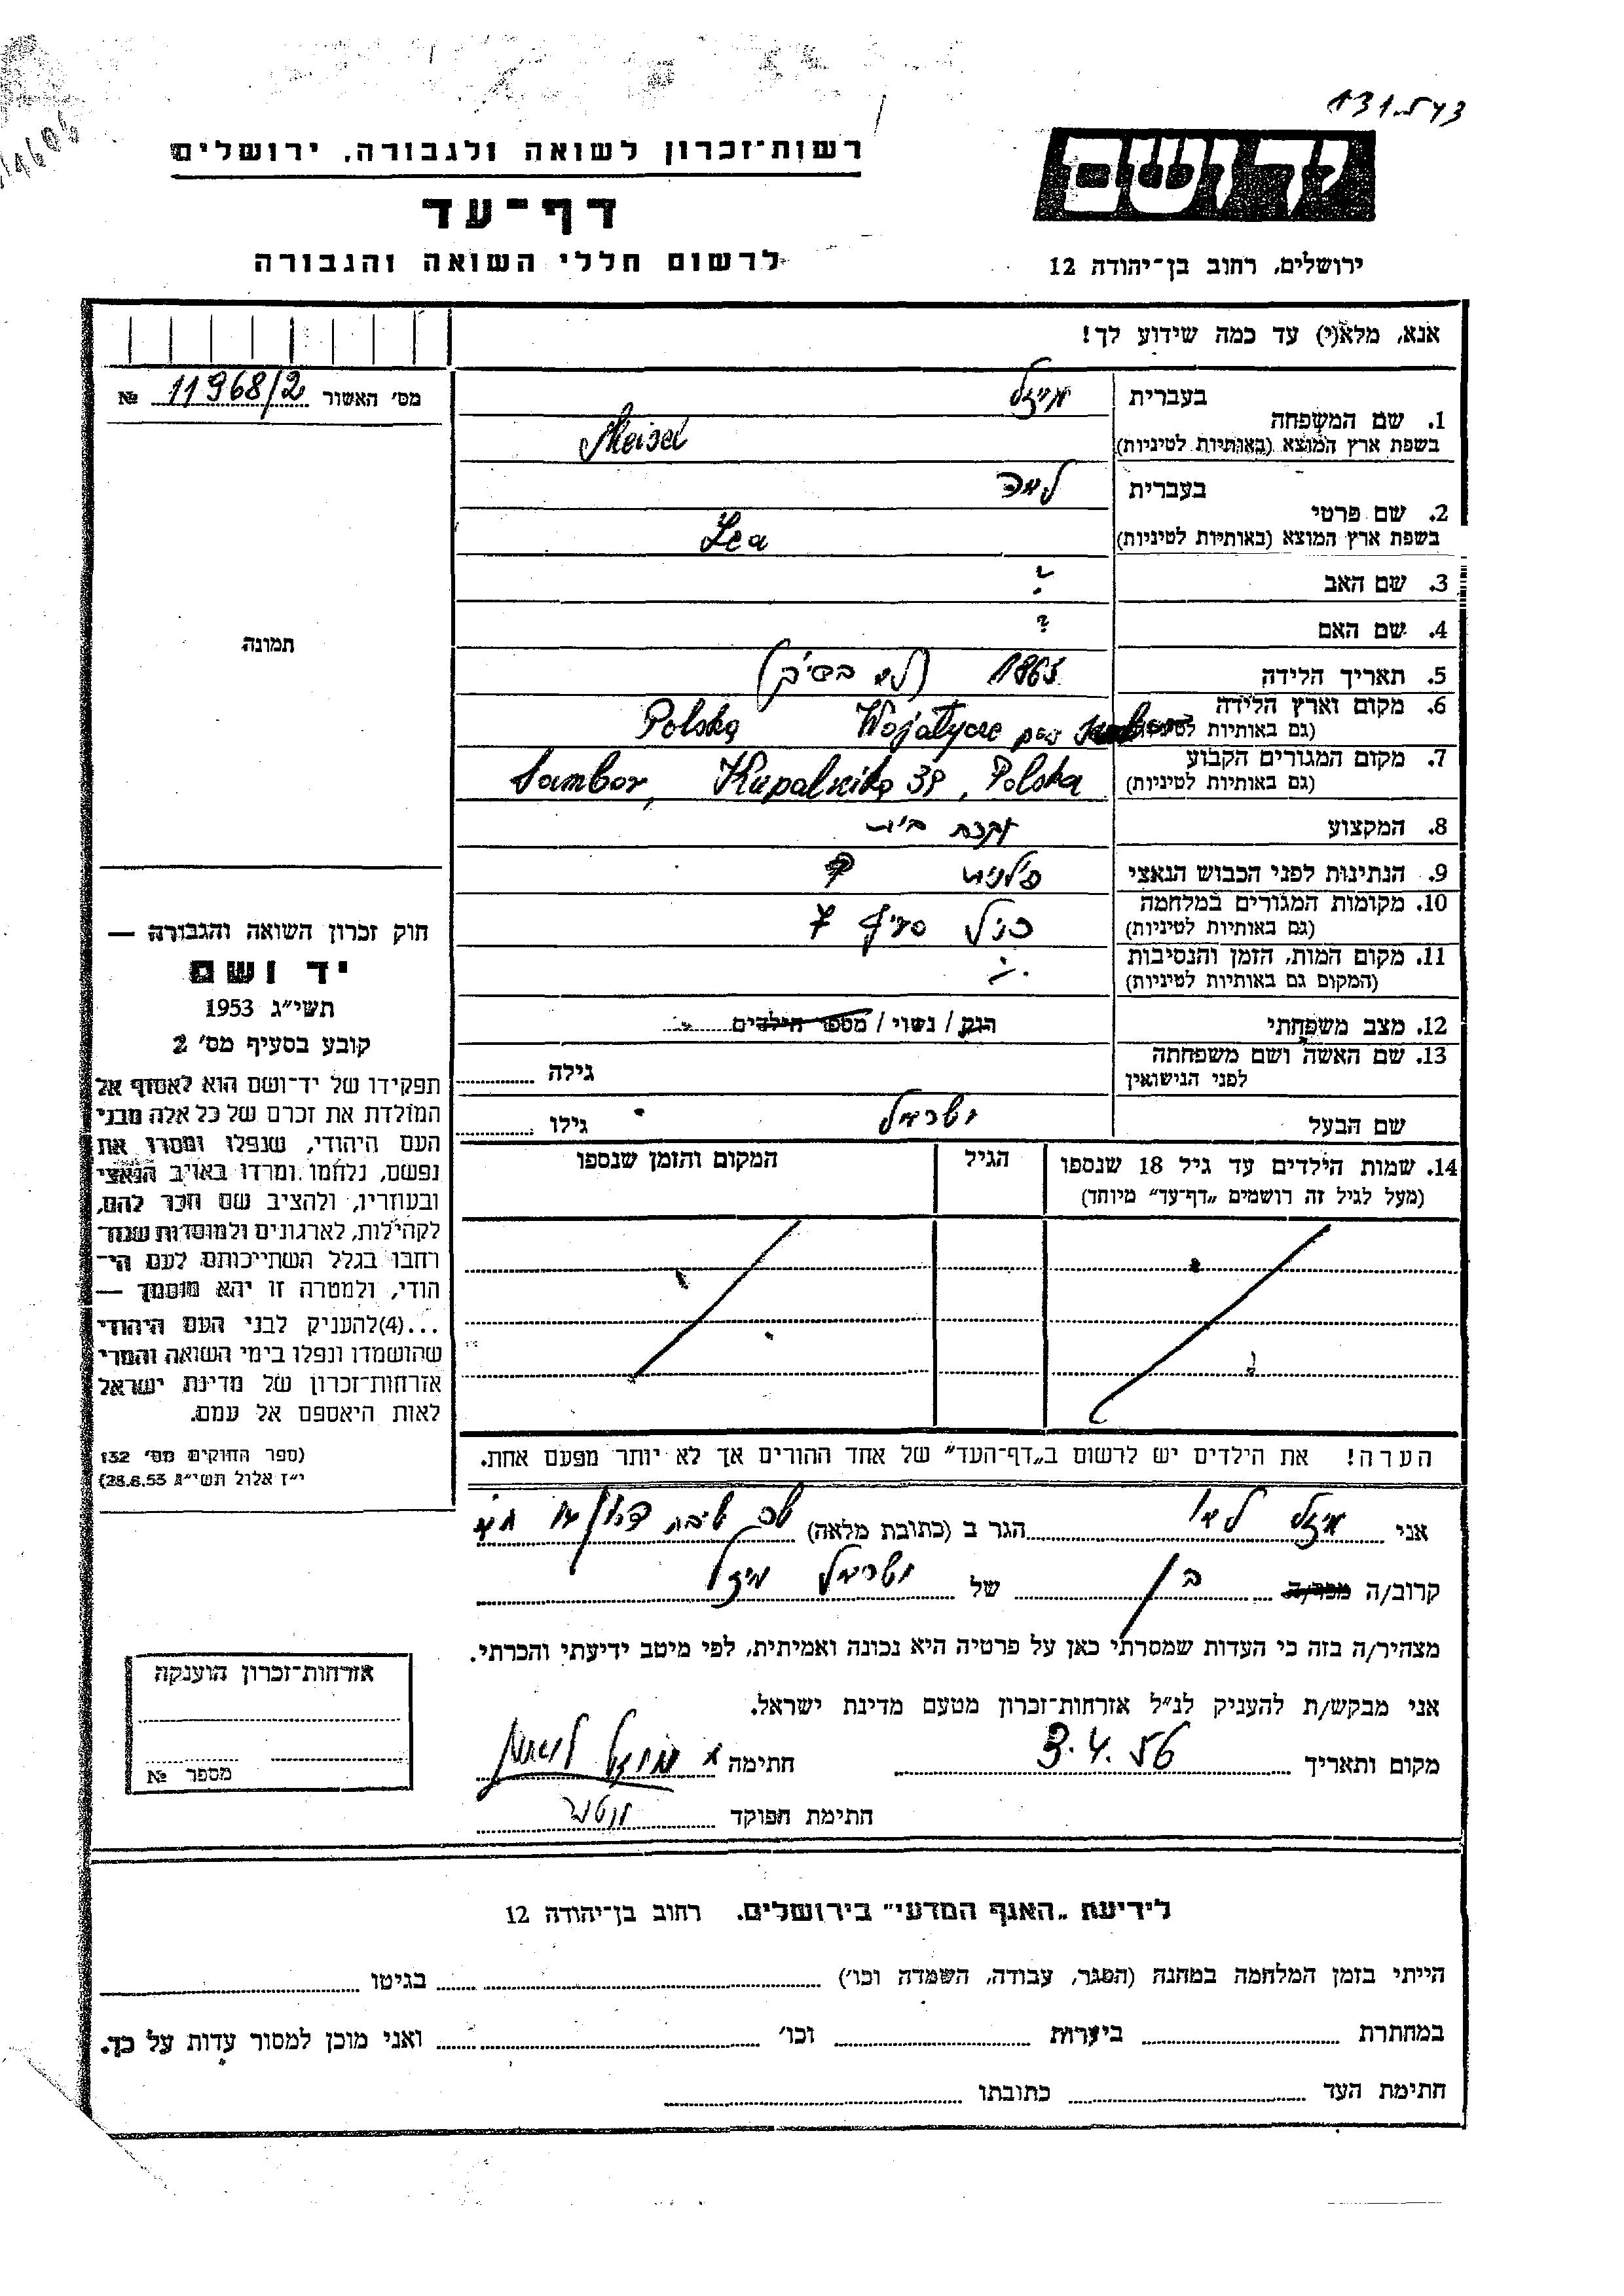 רשות־זכרון לשואה ולגבורה, ירושלים
דף־עד
לרשום חללי השואה והגבורה
יד ושם
ירושלים, רחוב בן־יהודה 12
אנא, מלא(י) עד כמה שידוע לך!
מס' האשור 11968/2 №
1. שם המשפחה
בעברית מייזל
בשפת ארץ המוצא (באותיות לטיניות) Meisel
2. שם פרטי
בעברית לאה
בשפת ארץ המוצא (באותיות לטיניות) Lea
3. שם האב ?
4. שם האם ?
5. תאריך הלידה 1863
6. מקום וארץ הלידה
(גם באותיות לטיניות) Polska
7. מקום המגורים הקבוע
(גם באותיות לטיניות) Sambor, 39, Polska
8. המקצוע עקרת בית
9. הנתינות לפני הכבוש הנאצי פולנית
10. מקומות המגורים במלחמה
(גם באותיות לטיניות) כנ"ל סעיף 7
11. מקום המות, הזמן והנסיבות
(המקום גם באותיות לטיניות)
12. מצב משפחתי רווק / נשוי / מספר הילדים
13. שם האשה ושם משפחתה
לפני הנישואין
גילה
שם הבעל
גילו
14. שמות הילדים עד גיל 18 שנספו
(מעל לגיל זה רושמים „דף־עד" מיוחד)
הגיל
המקום והזמן שנספו
הערה! את הילדים יש לרשום ב„דף־העד" של אחד ההורים אך לא יותר מפעם אחת.
תמונה
חוק זכרון השואה והגבורה —
יד ושם
תשי"ג 1953
קובע בסעיף מס' 2
תפקידו של יד־ושם הוא לאסוף אל
המולדת את זכרם של כל אלה מבני
העם היהודי, שנפלו ומסרו את
נפשם, נלחמו ומרדו באויב הנאצי
ובעוזריו, ולהציב שם וזכר להם,
לקהילות, לארגונים ולמוסדות שנח־
רבו בגלל השתייכותם לעם הי־
הודי, ולמטרה זו יהא מוסמך —
...(4) להעניק לבני העם היהודי
שהושמדו ונפלו בימי השואה והמרי
אזרחות־זכרון של מדינת ישראל
לאות היאספם אל עמם.
(ספר החוקים מס' 132
י"ז אלול תשי"ג 28.8.53)
אני מיזל
הגר ב (כתובת מלאה)
קרוב/ה מכר/ה בן של מיזל
מצהיר/ה בזה כי העדות שמסרתי כאן על פרטיה היא נכונה ואמיתית, לפי מיטב ידיעתי והכרתי.
אני מבקש/ת להעניק לנ"ל אזרחות־זכרון מטעם מדינת ישראל.
מקום ותאריך 3.4.56 חתימה
חתימת הפוקד
אזרחות־זכרון הוענקה
מספר №
לידיעת „האגף המדעי" בירושלים, רחוב בן־יהודה 12
הייתי בזמן המלחמה במחנה (הסגר, עבודה, השמדה וכו') בגיטו
במחתרת ביערות וכו' ואני מוכן למסור עדות על כך.
חתימת העד כתובתו